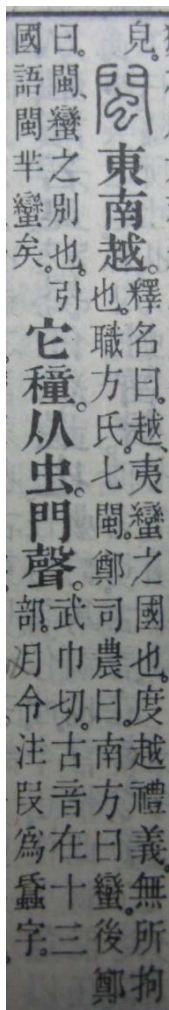 皃。
閩
東南越。
釋名曰。越、夷蠻之國也。度越禮義。無所拘
也。職方氏七閩。鄭司農曰。南方曰蠻。後鄭
曰。閩、蠻之別也。引
國語閩羋蠻矣。
它穜。从虫。門聲。
武巾切。古音在十三
部。月令注叚爲蟁字。